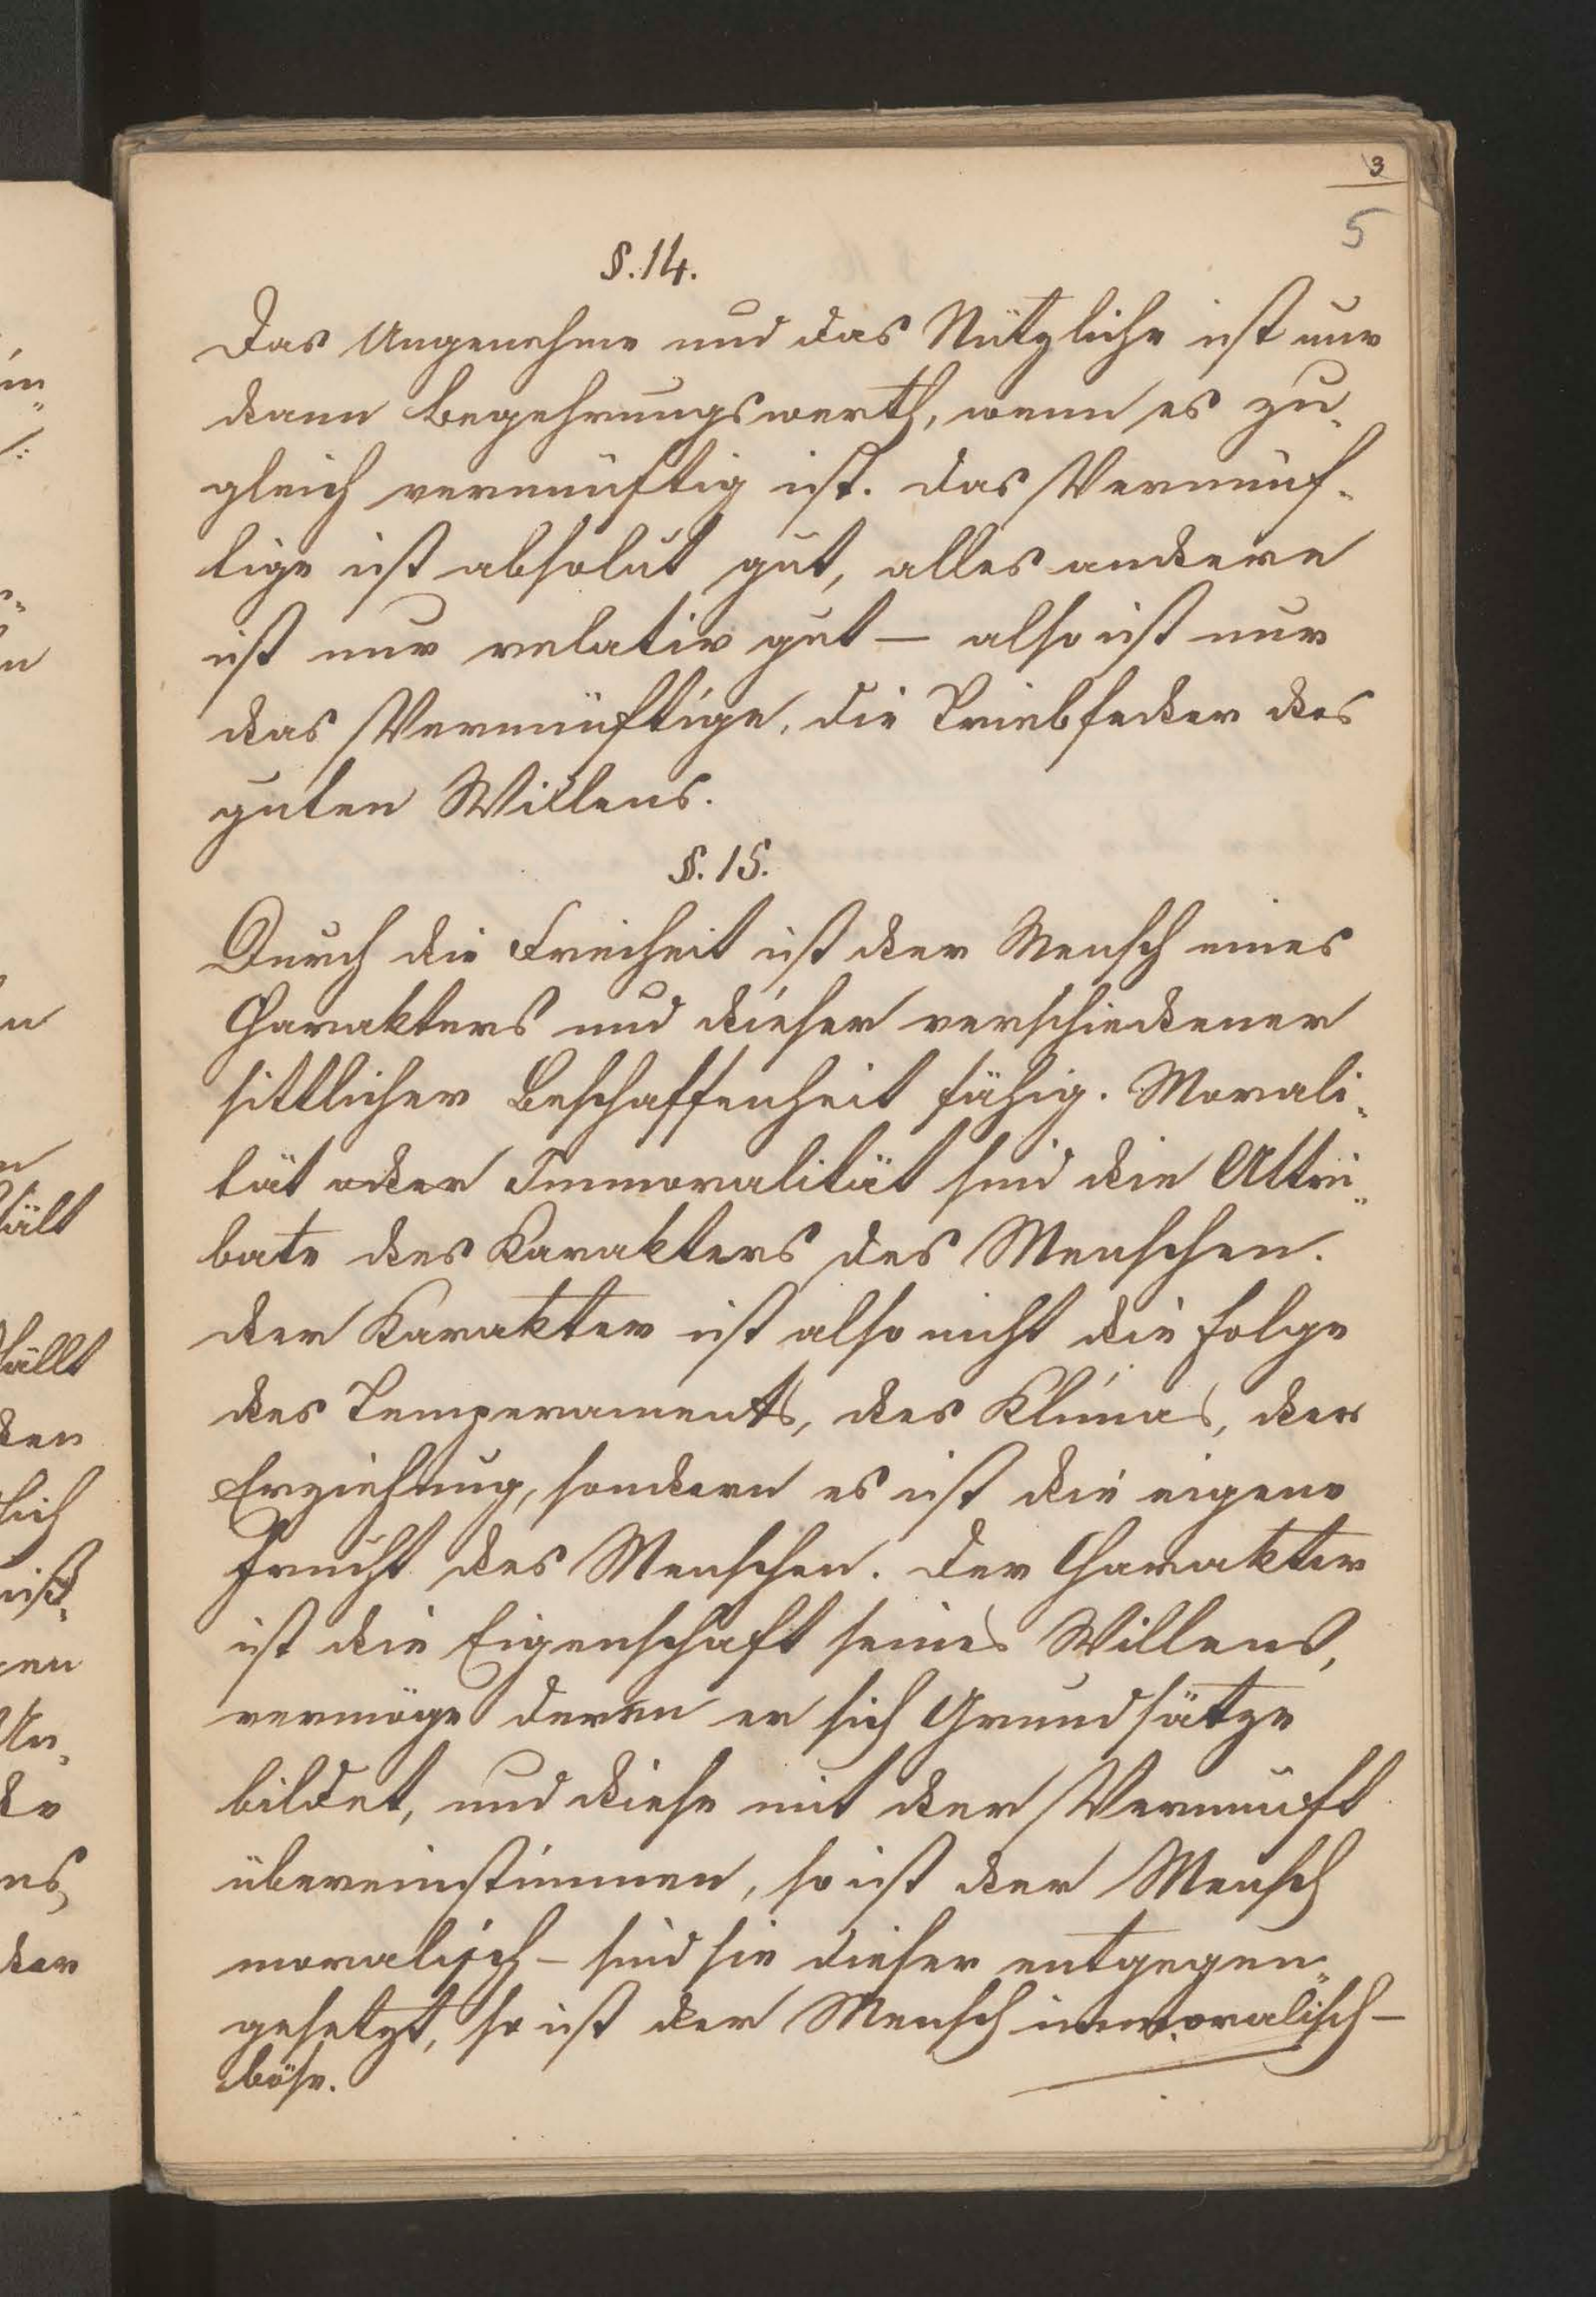 3
5
§. 14.
Das Angenehme und das Nützliche ist nur
dann begehrungswerth, wenn es zu-
gleich vernünftig ist. Das Vernünf-
tige ist absolut gut, alles andere
ist nur relativ gut — also ist nur
das Vernünftige, die Triebfeder des
guten Willens.
§. 15.
Durch die Freiheit ist der Mensch eines
Charakters und dieser verschiedener
sittlicher Beschaffenheit fähig. Morali-
tät oder Immoralität sind die Attri-
bute des Karakters des Menschen.
der Karakter ist also nicht die Folge
des Temperaments, des Klimas, der
Erziehung, sondern es ist die eigene
Frucht des Menschen. Der Charakter
ist die Eigenschaft seines Willens,
vermöge deren er sich Grundsätze
bildet, und diese mit der Vernunft
übereinstimmen, so ist der Mensch
moralisch – sind sie dieser entgegen-
gesetzt, so ist der Mensch immoralisch –
böse.